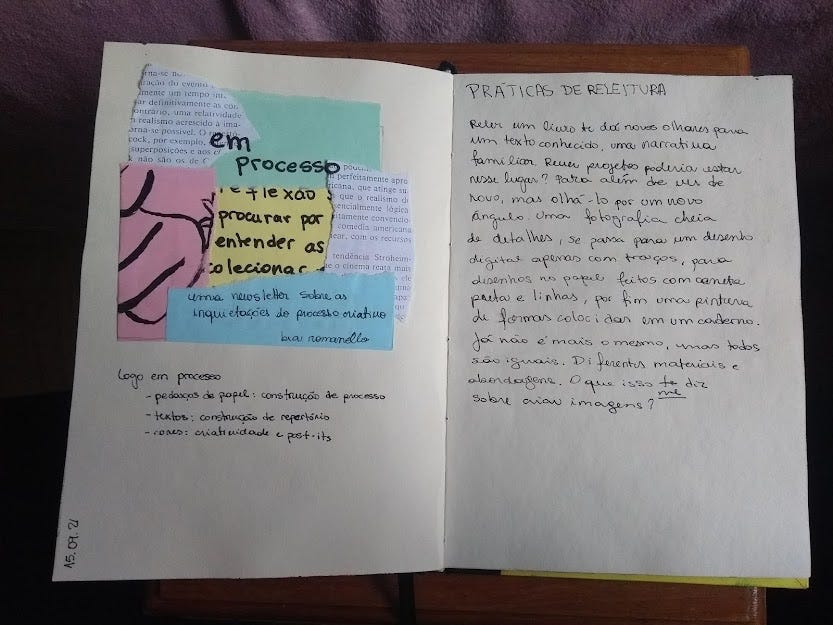 rna-se no
ração do evento
mente um tempo
ar definitivamente as con
ontrário, uma relatividade
realismo acrescido à ima-
orna-se possível. O
cock, por exemplo,
superposições e aos c
k não são os de C
em
processo
reflexão
procurar por
entender as
colecionar
perfeitamente apro
ricana, que atinge su
que o realismo di
sencialmente lógica
itamente convencio
comédia americana
ear, com os recursos
tendência Stroheim-
e o cinema reata mais
uma newsletter sobre as
inquietações do processo criativo
bia romanello
Logo em processo
- pedaços de papel: construção de processo
- textos: construção de repertório
- cores: criatividade e post-its
15.09.21
PRÁTICAS DE RELEITURA
Reler um livro te dá novos olhares para
um texto conhecido, uma narrativa
familiar. Rever projetos poderia estar
nesse lugar? Para além de ver de
novo, mas olhá-lo por um novo
ângulo. Uma fotografia cheia
de detalhes, se passa para um desenho
digital apenas com traços, para
desenhos no papel feitos com caneta
preta e linhas, por fim uma pintura
de formas coloridas em um caderno.
Já não é mais o mesmo, mas todos
são iguais. Diferentes materiais e
abordagens. O que isso te diz
me
sobre criar imagens?